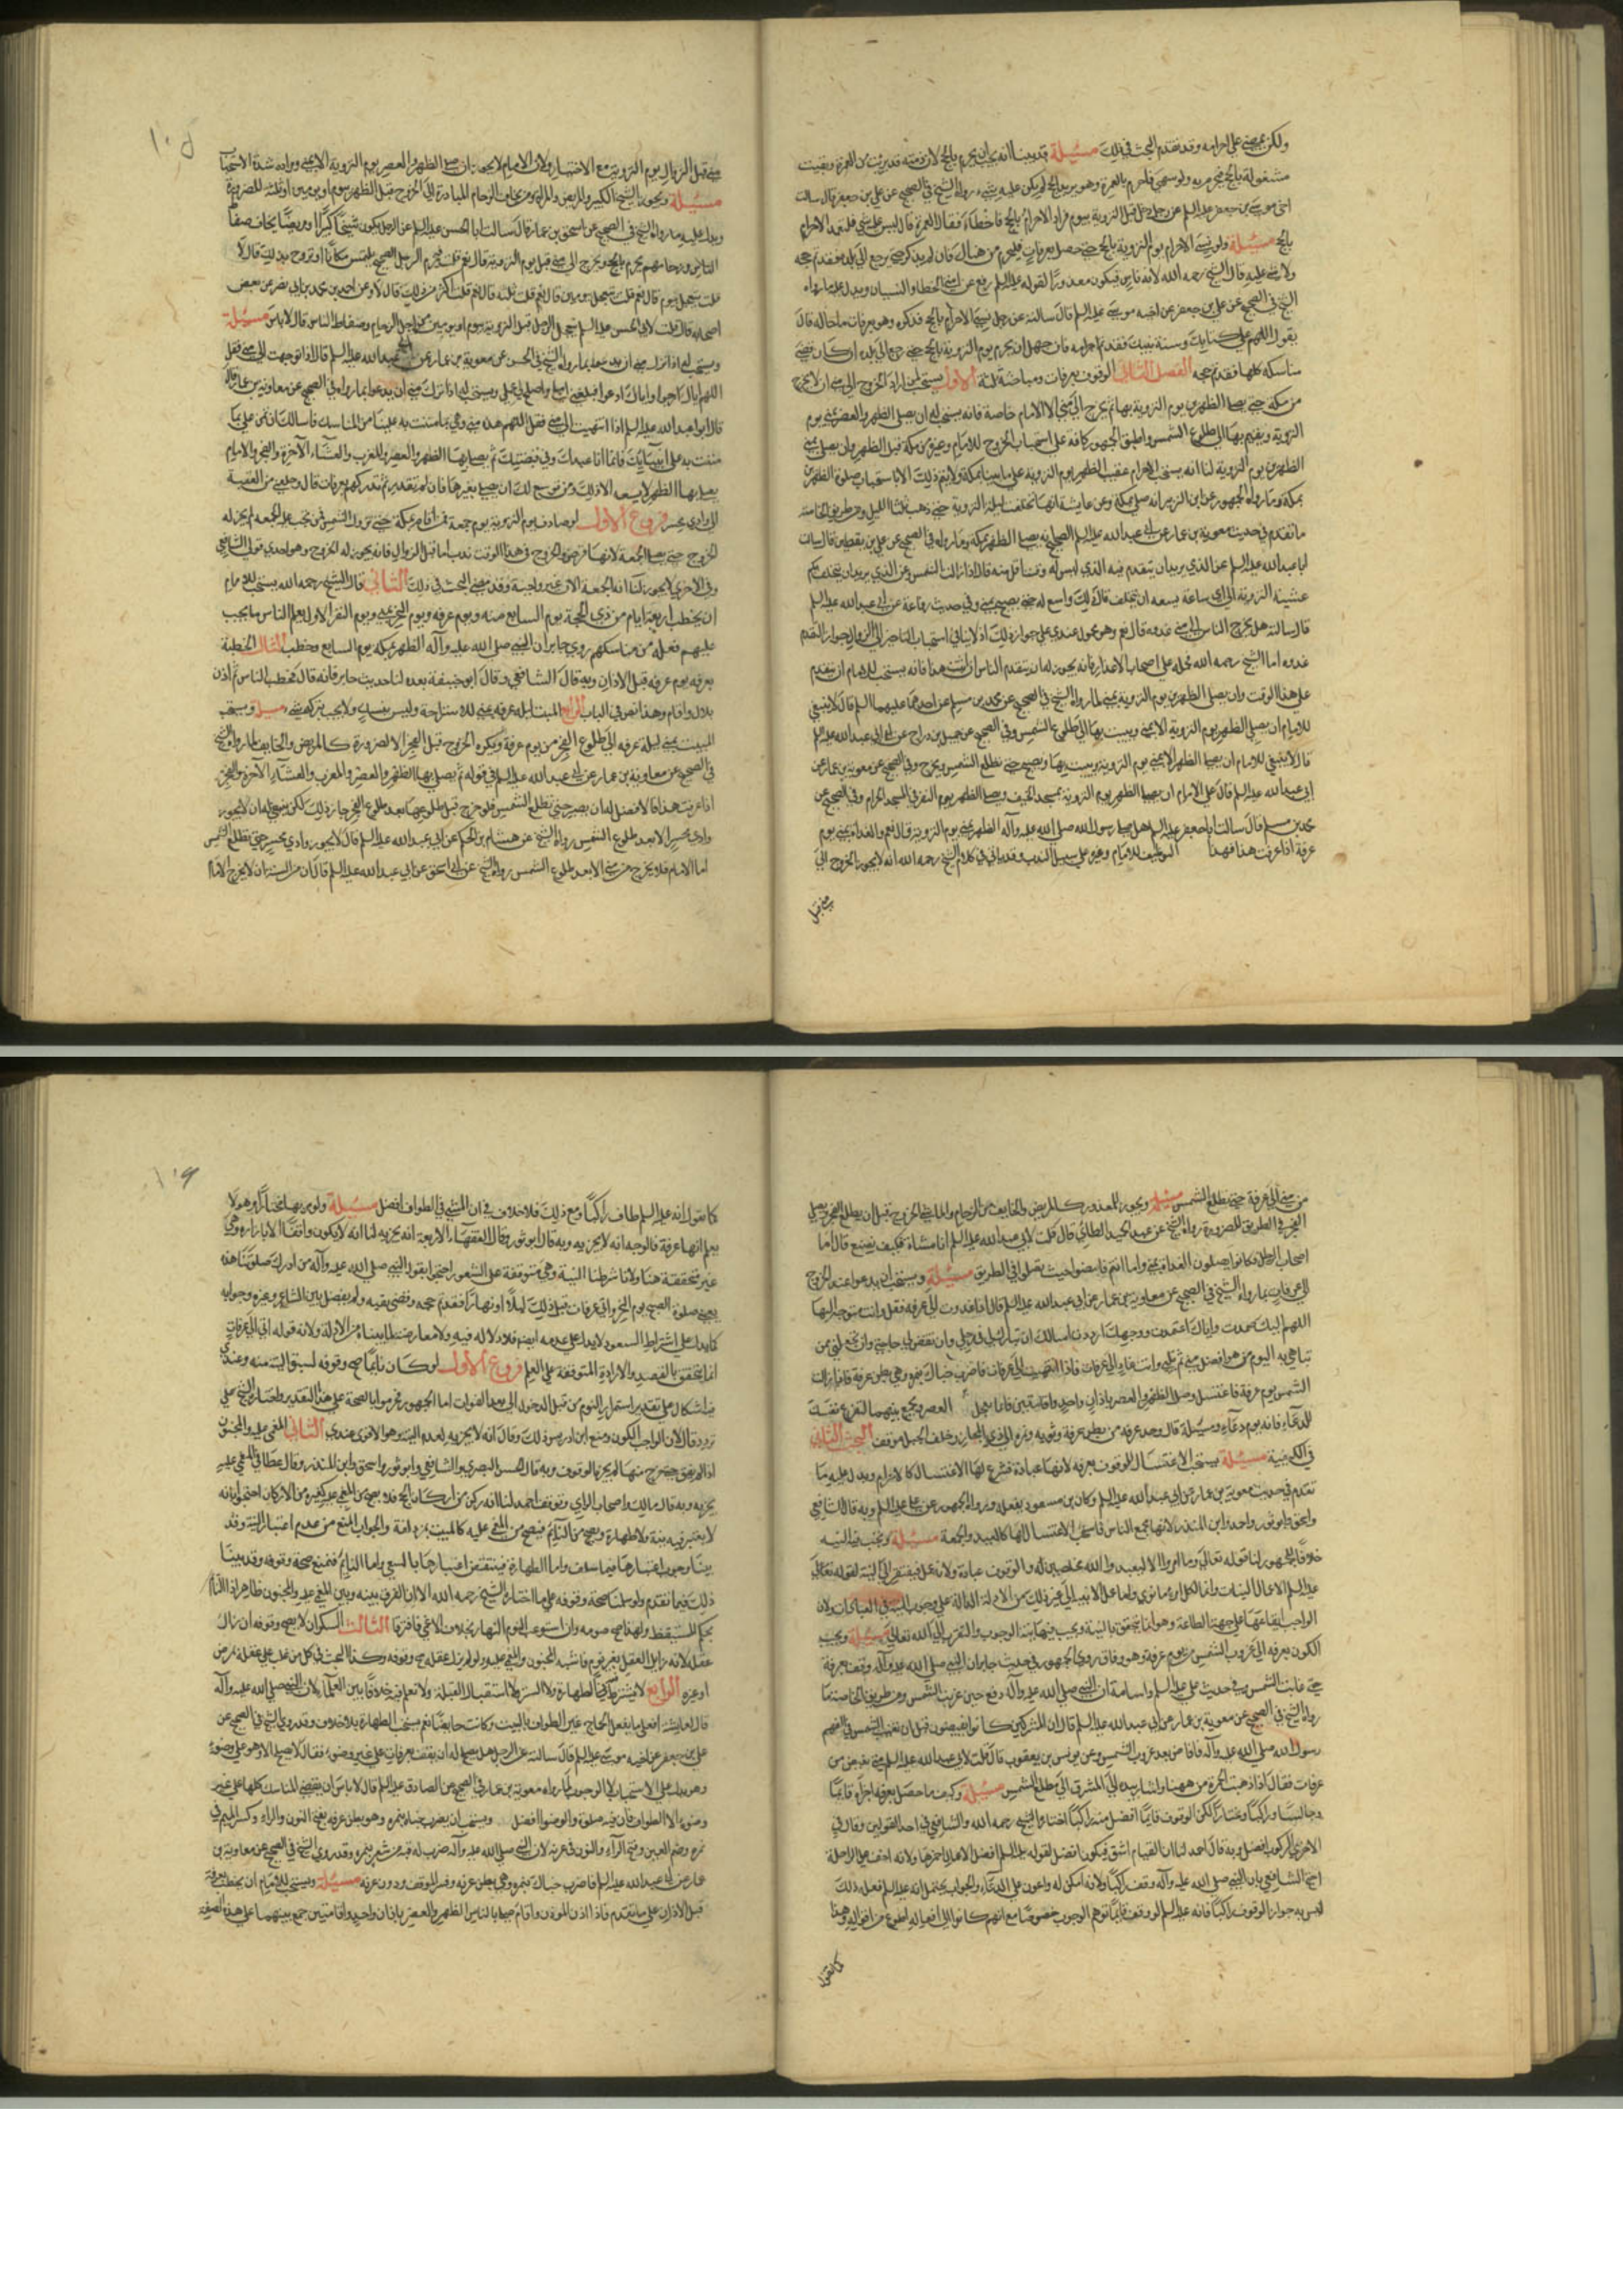 ولكن يمضي على احرامه وقد تقدم البحث في ذلك مسئلة قد بينا انه يجب ان يحرم بالحج لان ذمته قد برئت من العمرة وبقيت
مشغولة بالحج فيحرم به ولو سهى فاحرم بالعمرة وهو يريد الحج لم يكن عليه شيء رواه الشيخ في الصحيح عن علي بن جعفر قال سالت
اخي موسى بن جعفر عليه السلم عن رجل دخل قبل التروية بيوم فاراد الاحرام بالحج فاخطأ فقال العمرة قال ليس عليه شيء فليعد الاحرام
بالحج مسئلة ولو نسى الاحرام يوم التروية بالحج حتى حصل بعرفات فليحرم من هناك فان لم يذكر حتى يرجع الى بلده فقد تم حجه
ولا شيء عليه قال الشيخ رحمه الله لانه ناس فيكون معذورا لقوله عليه السلم رفع عن امتي الخطا والنسيان ويدل عليه ما رواه
الشيخ في الصحيح عن علي بن جعفر عن اخيه موسى عليه السلم قال سالته عن رجل نسى الاحرام بالحج فذكره وهو بعرفات ما حاله قال
يقول اللهم على كتابك وسنة نبيك فقد تم احرامه فان جهل ان يحرم يوم التروية بالحج حتى رجع الى بلده ان كان قضى
مناسكه كلها فقد تم حجه الفصل الثاني الوقوف بعرفات ومباحثه ثلثة الاول يستحب لمن اراد الخروج الى منى ان لا يخرج
من مكة حتى يصلي الظهرين يوم التروية بها ثم يخرج الى منى الا الامام خاصة فانه يستحب له ان يصلي الظهر والعصر بمنى يوم
التروية ويقيم بها الى طلوع الشمس واطبق الجمهور كافة على استحباب الخروج للامام وغيره من مكة قبل الظهر وان يصلي بمنى
الظهرين يوم التروية لنا انه يستحب الاحرام عقيب الظهر يوم التروية على ما بينا بمكة ولا يتم ذلك الا باستحباب صلوة الظهرين
بمكة وما رواه الجمهور عن ابن الزبير انه صلى بمكة وعن عايشة انها تخلفت ليلة التروية حتى ذهب ثلثا الليل ومن طريق الخاصة
ما تقدم في حديث معوية بن عمار عن ابي عبد الله عليه السلم انه يصلي الظهر بمكة وما رواه في الصحيح عن علي بن يقطين قال سالت
ابا عبد الله عليه السلم عن الذي يريد ان يتقدم فيه الذي ليس له وقت اقل منه قال اذا زالت الشمس وعن الذي يريد ان يتخلف بمكة
عشية التروية الى اي ساعة يسعه ان يتخلف قال ذلك واسع له حتى يصبح بمنى وفي حديث رفاعة عن ابي عبد الله عليه السلم
قال سالته هل يخرج الناس الى منى غدوة قال نعم وهو محمول عندي على جواز ذلك اذ لا ينافي استحباب التاخير الى الزوال جواز التقدم
غدوة اما الشيخ رحمه الله فحمله على اصحاب الاعذار فانه يجوز لهم ان يتقدم الناس اذا ثبت هذا فانه يستحب للامام ان يتقدم
على هذا الوقت وان يصلي الظهرين يوم التروية بمنى لما رواه الشيخ في الصحيح عن محمد بن مسلم عن احدهما عليهما السلم قال لا ينبغي
للامام ان يصلي الظهر يوم التروية الا بمنى ويبيت بها الى طلوع الشمس وفي الصحيح عن جميل بن دراج عن ابي عبد الله عليه السلم
قال لا ينبغي للامام ان يصلي الظهر الا بمنى يوم التروية ويبيت بها ويصبح حتى تطلع الشمس ويخرج وفي الصحيح عن معوية بن عمار عن
ابي عبد الله عليه السلم قال على الامام ان يصلي الظهر يوم التروية بمسجد الخيف ويصلي الظهر يوم النفر في المسجد الحرام وفي الصحيح عن
محمد بن مسلم قال سالت ابا جعفر عليه السلم هل صلى رسول الله صلى الله عليه وآله الظهر بمنى يوم التروية قال نعم والغداة بمنى يوم
عرفة اذا عرفت هذا فهذا التوظيف للامام وغيره على سبيل الندب وقد ياتي في كلام الشيخ رحمه الله انه لا يجوز الخروج الى
منى قبل
١٠٥
منى قبل الزوال يوم التروية مع الاختيار ولان الامام لا يجوز ان يصلي الظهر والعصر يوم التروية الا بمنى ومراده شدة الاستحباب
مسئلة ويجوز للشيخ الكبير والمريض والمراة ومن يخاف الزحام المبادرة الى الخروج قبل الظهر بيوم او يومين او ثلثة للضرورة
ويدل عليه ما رواه الشيخ في الصحيح عن اسحق بن عمار قال سالت ابا الحسن عليه السلم عن الرجل يكون شيخا كبيرا او مريضا يخاف ضغاط
الناس وزحامهم يحرم بالحج ويخرج الى منى قبل يوم التروية قال نعم قلت فيخرج الرجل الصحيح يلتمس مكانا او يتروح بذلك قال لا
قلت يتعجل بيوم قال نعم قلت يتعجل بيومين قال نعم قلت ثلثة قال نعم قلت اكثر من ذلك قال لا وعن احمد بن محمد بن ابي نصر عن بعض
اصحابه قال قلت لابي الحسن عليه السلم يتعجل الرجل قبل التروية بيوم او يومين من اجل الزحام وضغاط الناس قال لا باس مسئلة
عبد الله عليه السلم قال اذا توجهت الى منى فقل
اللهم اياك ارجوا واياك ادعوا فبلغني املي واصلح لي عملي ويستحب له اذا نزل منى ان يدعوا بما رواه في الصحيح عن معاوية بن عمار قال
قال ابو عبد الله عليه السلم اذا انتهيت الى منى فقل اللهم هذه منى وهي مما مننت به علينا من المناسك فاسالك ان تمن علي بما
مننت به على انبيائك فانما انا عبدك وفي قبضتك ثم يصلي بها الظهر والعصر والمغرب والعشاء الآخرة والفجر والامام
يصلي بها الظهر لا يسعه الا ذلك وموسع لك ان تصلي بغيرها فان لم تقدر ثم تدركهم بعرفات قال وحد منى من العقبة
الى وادي محسر فروع الاول لو صادف يوم التروية يوم جمعة فمن اقام بمكة حتى تزول الشمس ممن تجب عليه الجمعة لم يجز له
الخروج حتى يصلي الجمعة لانها فرض والخروج في هذا الوقت ندب اما قبل الزوال فانه يجوز له الخروج وهو احدى قولي الشافعي
وفي الاخرى لا يجوز لنا انه الجمعة الان غير واجبة وقد مضى البحث في ذلك الثاني قال الشيخ رحمه الله يستحب للامام
ان يخطب اربعة ايام من ذي الحجة يوم السابع منه ويوم عرفة ويوم النحر بمنى ويوم النفر الاول يعلم الناس ما يجب
عليهم فعله من مناسكهم روى جابر ان النبي صلى الله عليه وآله الظهر بمكة يوم السابع وخطب الثالث الخطبة
بعرفة يوم عرفة قبل الاذان وبه قال الشافعي وقال ابو حنيفة بعده لنا حديث جابر فانه قال ثم خطب الناس ثم اذن
بلال واقام وهذا نص في الباب الرابع المبيت ليلة عرفة بمنى للاستراحة وليس بنسك ولا يجب بتركه شيء مسئلة ويستحب
المبيت بمنى ليلة عرفة الى طلوع الفجر من يوم عرفة ويكره الخروج قبل الفجر الا لضرورة كالمريض والخايف لما رواه الشيخ
في الصحيح عن معاوية بن عمار عن ابي عبد الله عليه السلم في قوله ثم يصلي بها الظهر والعصر والمغرب والعشاء الآخرة والفجر
اذا عرفت هذا فالافضل له ان يصبر حتى تطلع الشمس فلو خرج قبل طلوعها بعد طلوع الفجر جاز ذلك لكن ينبغي له ان لا يجوز
وادي محسر الا بعد طلوع الشمس رواه الشيخ عن هشام بن الحكم عن ابي عبد الله عليه السلم قال لا يجوز وادي محسر حتى تطلع الشمس
اما الامام فلا يخرج من منى الا بعد طلوع الشمس رواه الشيخ عن ابي اسحق عن ابي عبد الله عليه السلم قال ان من السنة ان لا يخرج الامام
من منى الى عرفة حتى تطلع الشمس مسئلة ويجوز للمعذور كالمريض والخايف من الزحام والماشي الخروج قبل ان يطلع الفجر ويصلي
الفجر في الطريق للضرورة رواه الشيخ عن عبد الحميد الطائي قال قلت لابي عبد الله عليه السلم انا مشاة فكيف نصنع قال اما
اصحاب الرحال فكانوا يصلون الغداة بمنى واما انتم فامضوا حيث تصلوا في الطريق مسئلة ويستحب ان يدعوا عند الخروج
الى عرفات بما رواه الشيخ في الصحيح عن معاوية بن عمار عن ابي عبد الله عليه السلم قال اذا غدوت الى عرفة فقل وانت متوجه اليها
اللهم اليك صمدت واياك اعتمدت ووجهك اردت اسالك ان تبارك لي في رحلي وان تقضي لي حاجتي وان تجعلني ممن
تباهي به اليوم من هو افضل مني ثم تلبي وانت غاد الى عرفات فاذا انتهيت الى عرفات فاضرب خباك بنمرة وهي بطن عرنة فاذا زالت
الشمس يوم عرفة فاغتسل وصل الظهر والعصر باذان واحد واقامتين فانما تعجل العصر وتجمع بينهما لتفرغ نفسك
للدعاء فانه يوم دعاء ومسئلة قال وحد عرفة من بطن عرنة وثوية ونمرة الى ذي المجاز وخلف الجبل موقف البحث الثاني
في الكيفية مسئلة يستحب الاغتسال للوقوف بعرفة لانها عبادة فشرع لها الاغتسال كالاحرام ويدل عليه ما
تقدم في حديث معوية بن عمار عن ابي عبد الله عليه السلم وكان بن مسعود يفعله ورواه الجمهور عن علي عليه السلم وبه قال الشافعي
واسحق وابو ثور واحمد وابن المنذر لانها مجمع الناس فاستحب الاغتسال لها كالعيد والجمعة مسئلة وتجب فيه النية
خلافا للجمهور لنا قوله تعالى وما امروا الا ليعبدوا الله مخلصين له والوقوف عبادة ولانه عمل فيفتقر الى النية لقوله
عليه السلم الاعمال بالنيات وانما لكل امرء ما نوى
الواجب ايقاعها على جهة الطاعة وهو انما يتحقق بالنية ويجب فيها نية الوجوب والتقرب الى الله تعالى مسئلة ويجب
الكون بعرفة الى غروب الشمس من يوم عرفة وهو وفاق روى الجمهور في حديث جابر ان النبي صلى الله عليه وآله وقف بعرفة
حتى غابت الشمس وفي حديث علي عليه السلم واسامة ان النبي صلى الله عليه وآله دفع حين غربت الشمس ومن طريق الخاصة ما
رواه الشيخ في الصحيح عن معوية بن عمار عن ابي عبد الله عليه السلم قال ان المشركين كانوا يفيضون قبل ان تغيب الشمس فخالفهم
رسول الله صلى الله عليه وآله فافاض بعد غروب الشمس وعن يونس بن يعقوب قال قلت لابي عبد الله عليه السلم متى نفيض من
عرفات فقال اذا ذهبت الحمرة من ههنا واشار بيده الى المشرق الى مطلع الشمس مسئلة وكيف ما حصل بعرفة اجزاه قايما
وجالسا وراكبا ومختارا لكن الوقوف قايما افضل منه راكبا اختاره الشيخ رحمه الله والشافعي في احد القولين وقال في
الاخرى الركوب افضل وبه قال احمد لنا ان القيام اشق فيكون افضل لقوله عليه السلم افضل الاعمال احمزها ولانه اخف على الراحلة
احتج الشافعي بان النبي صلى الله عليه وآله وقف راكبا ولانه امكن له واعون على الدعاء والجواب يحتمل انه عليه السلم فعل ذلك
لبيان جواز الوقوف راكبا فانه عليه السلم لو وقف قائما لتوهم الوجوب خصوصا مع انهم كانوا الى افعاله اطوع من اقواله وهذا
كما نقول
١٠٦
كما نقول انه عليه السلم طاف راكبا ومع ذلك فلا خلاف في ان المشي في الطواف افضل مسئلة ولو مر بها مجتازا وهو لا
يعلم انها عرفة فالوجه انه لا يجزيه وبه قال ابو ثور وقال الفقهاء الاربعة انه يجزيه لنا انه لا يكون واقفا الا بارادة وهي
غير متحققة هنا ولانا شرطنا النية وهي متوقفة على الشعور احتجوا بقول النبي صلى الله عليه وآله من ادرك صلوتنا هذه
يعني صلوة الصبح يوم النحر واتى عرفات قبل ذلك ليلا او نهارا فقد تم حجه وقضى تفثه ولم يفصل بين الشاعر وغيره وجوابه
كما يدل على اشتراط الشعور لا يدل على عدمه ايضا فلا دلالة فيه ولا معارضة لما بيناه من الادلة ولانه قوله اتى الى عرفات
انما يتحقق بالقصد والارادة المتوقفة على العلم فروع الاول لو كان نائما صح وقوفه لسبق النية منه وعندي
فيه اشكال على تقدير استمرار النوم من قبل الدخول الى بعد الفوات اما الجمهور فجزموا بالصحة على هذا التقدير وظاهر الشيخ
تردد قال لان الواجب الكون ومنع ابن ادريس ذلك وقال انه لا يجزيه لعدم النية وهو الاقوى عندي الثاني المغمى عليه والمجنون
اذا لم يفق حتى خرج منها لم يجزه الوقوف وبه قال الحسن البصري والشافعي وابو ثور واسحق وابن المنذر وقال عطا في المغمى عليه
يجزيه وبه قال مالك واصحاب الراي وتوقف احمد لنا انه ركن من اركان الحج فلا يصح من المغمى عليه كغيره من الاركان احتجوا بانه
لا يعتبر فيه نية ولا طهارة ويصح من النائم فيصح من المغمى عليه كالمبيت بمزدلفة والجواب المنع من عدم اعتبار النية وقد
بينا وجوب اعتبارها فيما سلف واما الطهارة فينتقض عدم اعتبارها بالسعي واما النائم فنمنع صحة وقوفه وقد بينا
ذلك فيما تقدم ولو سلمنا صحة وقوفه على ما اختاره الشيخ رحمه الله الا ان الفرق بينه وبين المغمى عليه والمجنون ظاهر اذ النائم
بحكم المستيقظ ولهذا صح صومه وان استوعب النوم النهار بخلاف الاغماء فافترقا الثالث السكران لا يصح وقوفه ان زال
عقله لانه زايل العقل بغير نوم فاشبه المجنون والمغمى عليه ولو لم يزل عقله صح وقوفه وكذا البحث في كل من غلب على عقله بمرض
او غيره الرابع لا يشترط فيه الطهارة ولا الستر ولا استقبال القبلة ولا نعلم فيه خلافا بين العلماء لان النبي صلى الله عليه وآله
قال لعايشة افعلي ما يفعل الحاج غير الطواف بالبيت وكانت حايضا نعم يستحب الطهارة بلا خلاف وقد روى الشيخ في الصحيح عن
علي بن جعفر عن اخيه موسى عليه السلم قال سالته عن الرجل هل يصلح له ان يقف بعرفات على غير وضوء فقال لا يصلح الا وهو على وضوء
وهو يدل على الاستحباب لا الوجوب لما رواه معوية بن عمار في الصحيح عن الصادق عليه السلم قال لا باس ان يقضي المناسك كلها على غير
وضوء الا الطواف فان فيه صلوة والوضوء افضل ويستحب ان يضرب خباه بنمرة وهو بطن عرنة بفتح النون والراء وكسر الميم في
نمرة وضم العين وفتح الراء والنون في عرنة لان النبي صلى الله عليه وآله ضرب له قبة من شعر بنمرة وقد روى الشيخ في الصحيح عن معاوية بن
عمار عن ابي عبد الله عليه السلم فاضرب خباك بنمرة وهي بطن عرنة وفي الموقف ودون عرفة مسئلة ويستحب للامام ان يخطب بعرفة
قبل الاذان على ما تقدم فاذا اذن الموذن واقام صلى بالناس الظهر والعصر باذان واحد واقامتين جمع بينهما على هذه الصفة